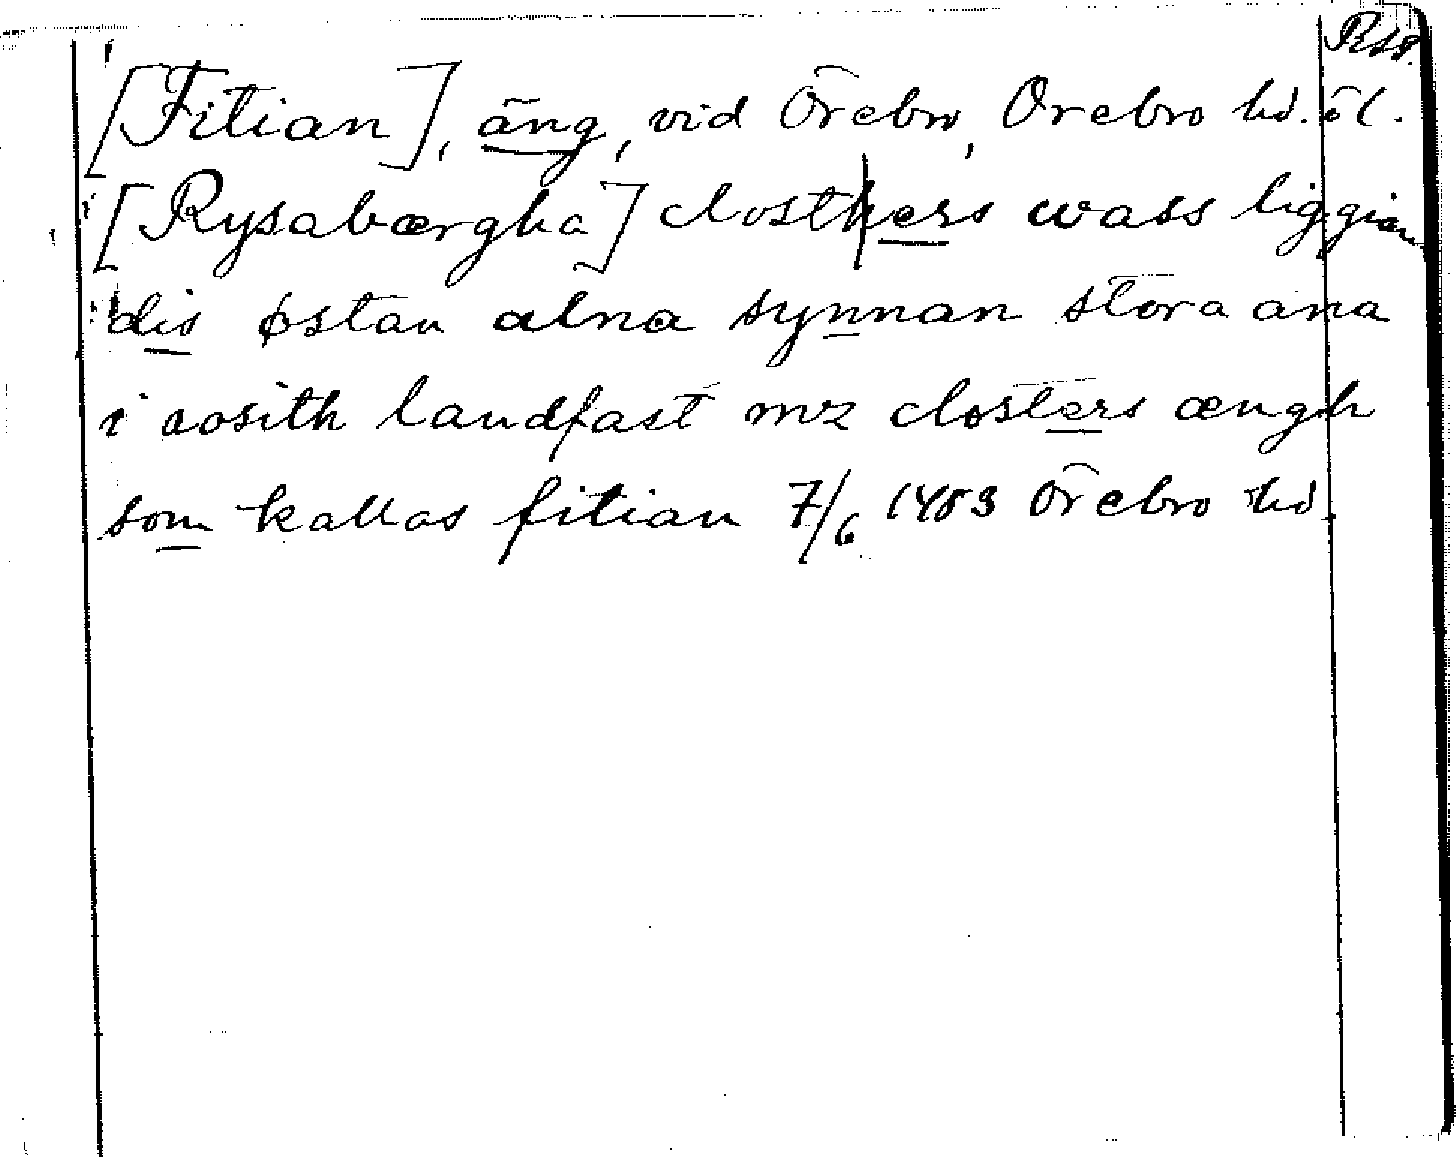 [Fitian], äng, vid Örebro, Örebro hd. öl.
[Rysabærgha] closthers wass liggian
dis østan alna synnan stora ana
i aosith landfast mz closters ængh
som kallas fitian 7/6 1483 Örebro hd